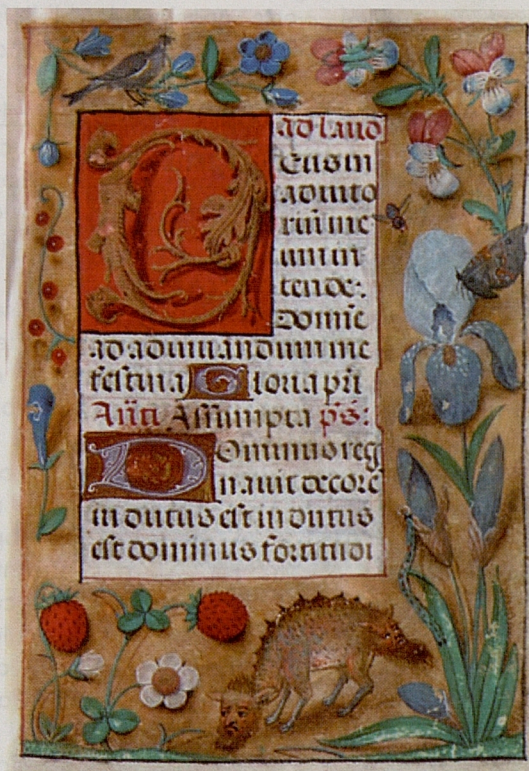 ad laud
Deus in
adiuto
riū me
um in
tende:
Domīe
ad adiuuandum me
festina Gloria pr̄i
An̄ti Assumpta ps̄:
Dominus reg
nauit decorē
indutus est indutus
est dominus fortitudi